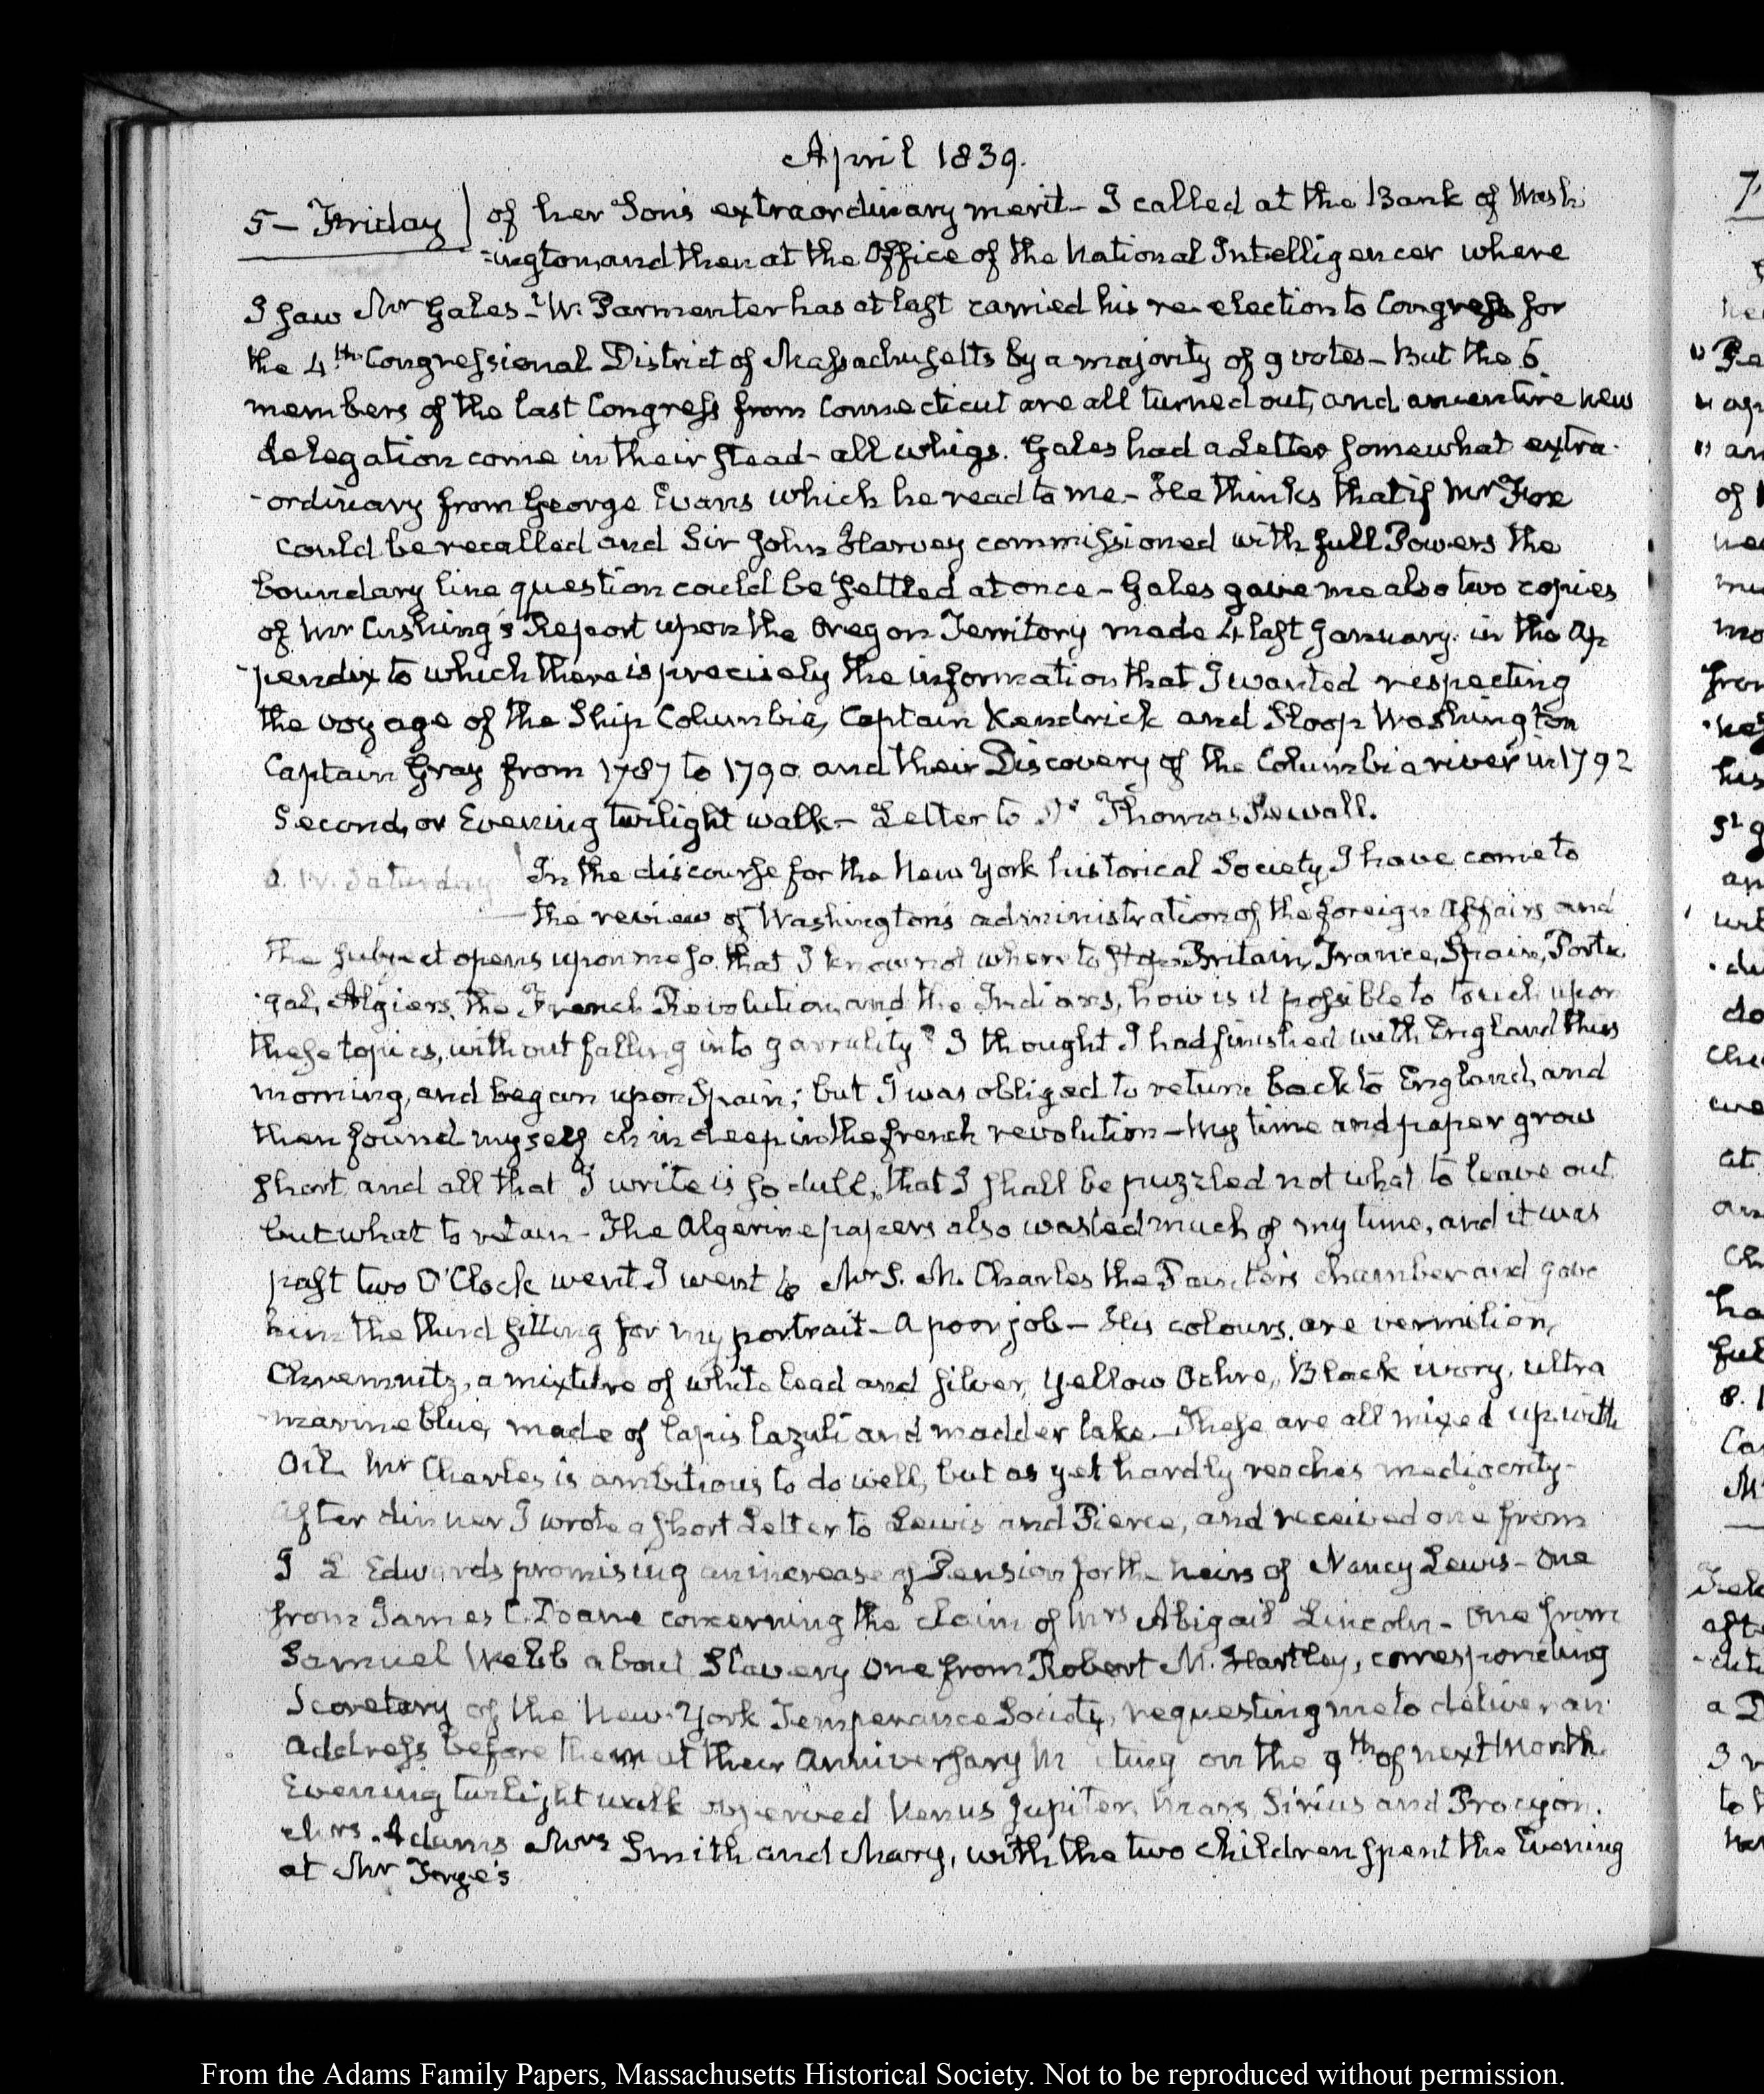 April 1839.
5 – Friday of her Son's extraordinary merit – I called at the Bank of Wash
=ington, and then at the Office of the National Intelligencer where
I saw Mr Gales – W. Parmenter has at last carried his re-election to Congress for
the 4th Congressional District of Massachusetts by a majority of 9 votes – But the 6
members of the last Congress from Connecticut are all turned out, and an entire new
delegation come in their stead – all whigs. Gales had a Letter somewhat extra-
-ordinary from George Evans which he read to me – He thinks that if Mr Fox
could be recalled and Sir John Harvey commissioned with full Powers the
boundary line question could be settled at once – Gales gave me also two copies
of Mr Cushing's Report upon the Oregon Territory made 4 last January. in the Ap
-pendix to which there is precisely the information that I wanted respecting
the voyage of the Ship Columbia, Captain Kendrick and Sloop Washington
Captain Gray from 1787 to 1790 and their Discovery of the Columbia river in 1792
Second, or Evening twilight walk – Letter to Dr Thomas Sewall.
6. IV. Saturday In the discourse for the New York historical Society, I have come to
the review of Washington's administration of the foreign Affairs and
the subject opens upon me so that I know not where to stop – Britain, France, Spain, Portu
-gal, Algiers, the French Revolution, and the Indians, how is it possible to touch upon
these topics, without falling into garrulity? I thought I had finished with England this
morning, and began upon Spain; but I was obliged to return back to England, and
then found myself chin deep in the french revolution – My time and paper grow
short, and all that I write is so dull, that I shall be puzzled not what to leave out
but what to retain – The Algerine papers also wasted much of my time, and it was
past two O'Clock went I went to Mr S. M. Charles the Painter's chamber and gave
him the third sitting for my portrait – A poor job – His colours, are vermilion,
Chremnitz, a mixture of white lead and silver, Yellow Ochre, Black ivory, ultra
-marine blue, made of lapis lazuli and madder lake – These are all mixed up with
Oil. Mr Charles is ambitious to do well, but as yet hardly reaches mediocrity –
After dinner I wrote a short Letter to Lewis and Pierce, and received one from
J L Edwards promising an increase of Pension for the heirs of Nancy Lewis – One
from James C. Doane concerning the claim of Mrs Abigail Lincoln – One from
Samuel Webb about Slavery One from Robert M. Hartley, corresponding
Secretary of the New-York Temperance Society, requesting me to deliver an
Address before them at their Anniversary M eting on the 9th of next Month.
Evening twilight walk observed Venus Jupiter, Mars, Sirius and Procyon.
Mrs Adams Mrs Smith and Mary, with the two children spent the Evening
at Mr Frye's
From the Adams Family Papers, Massachusetts Historical Society. Not to be reproduced without permission.